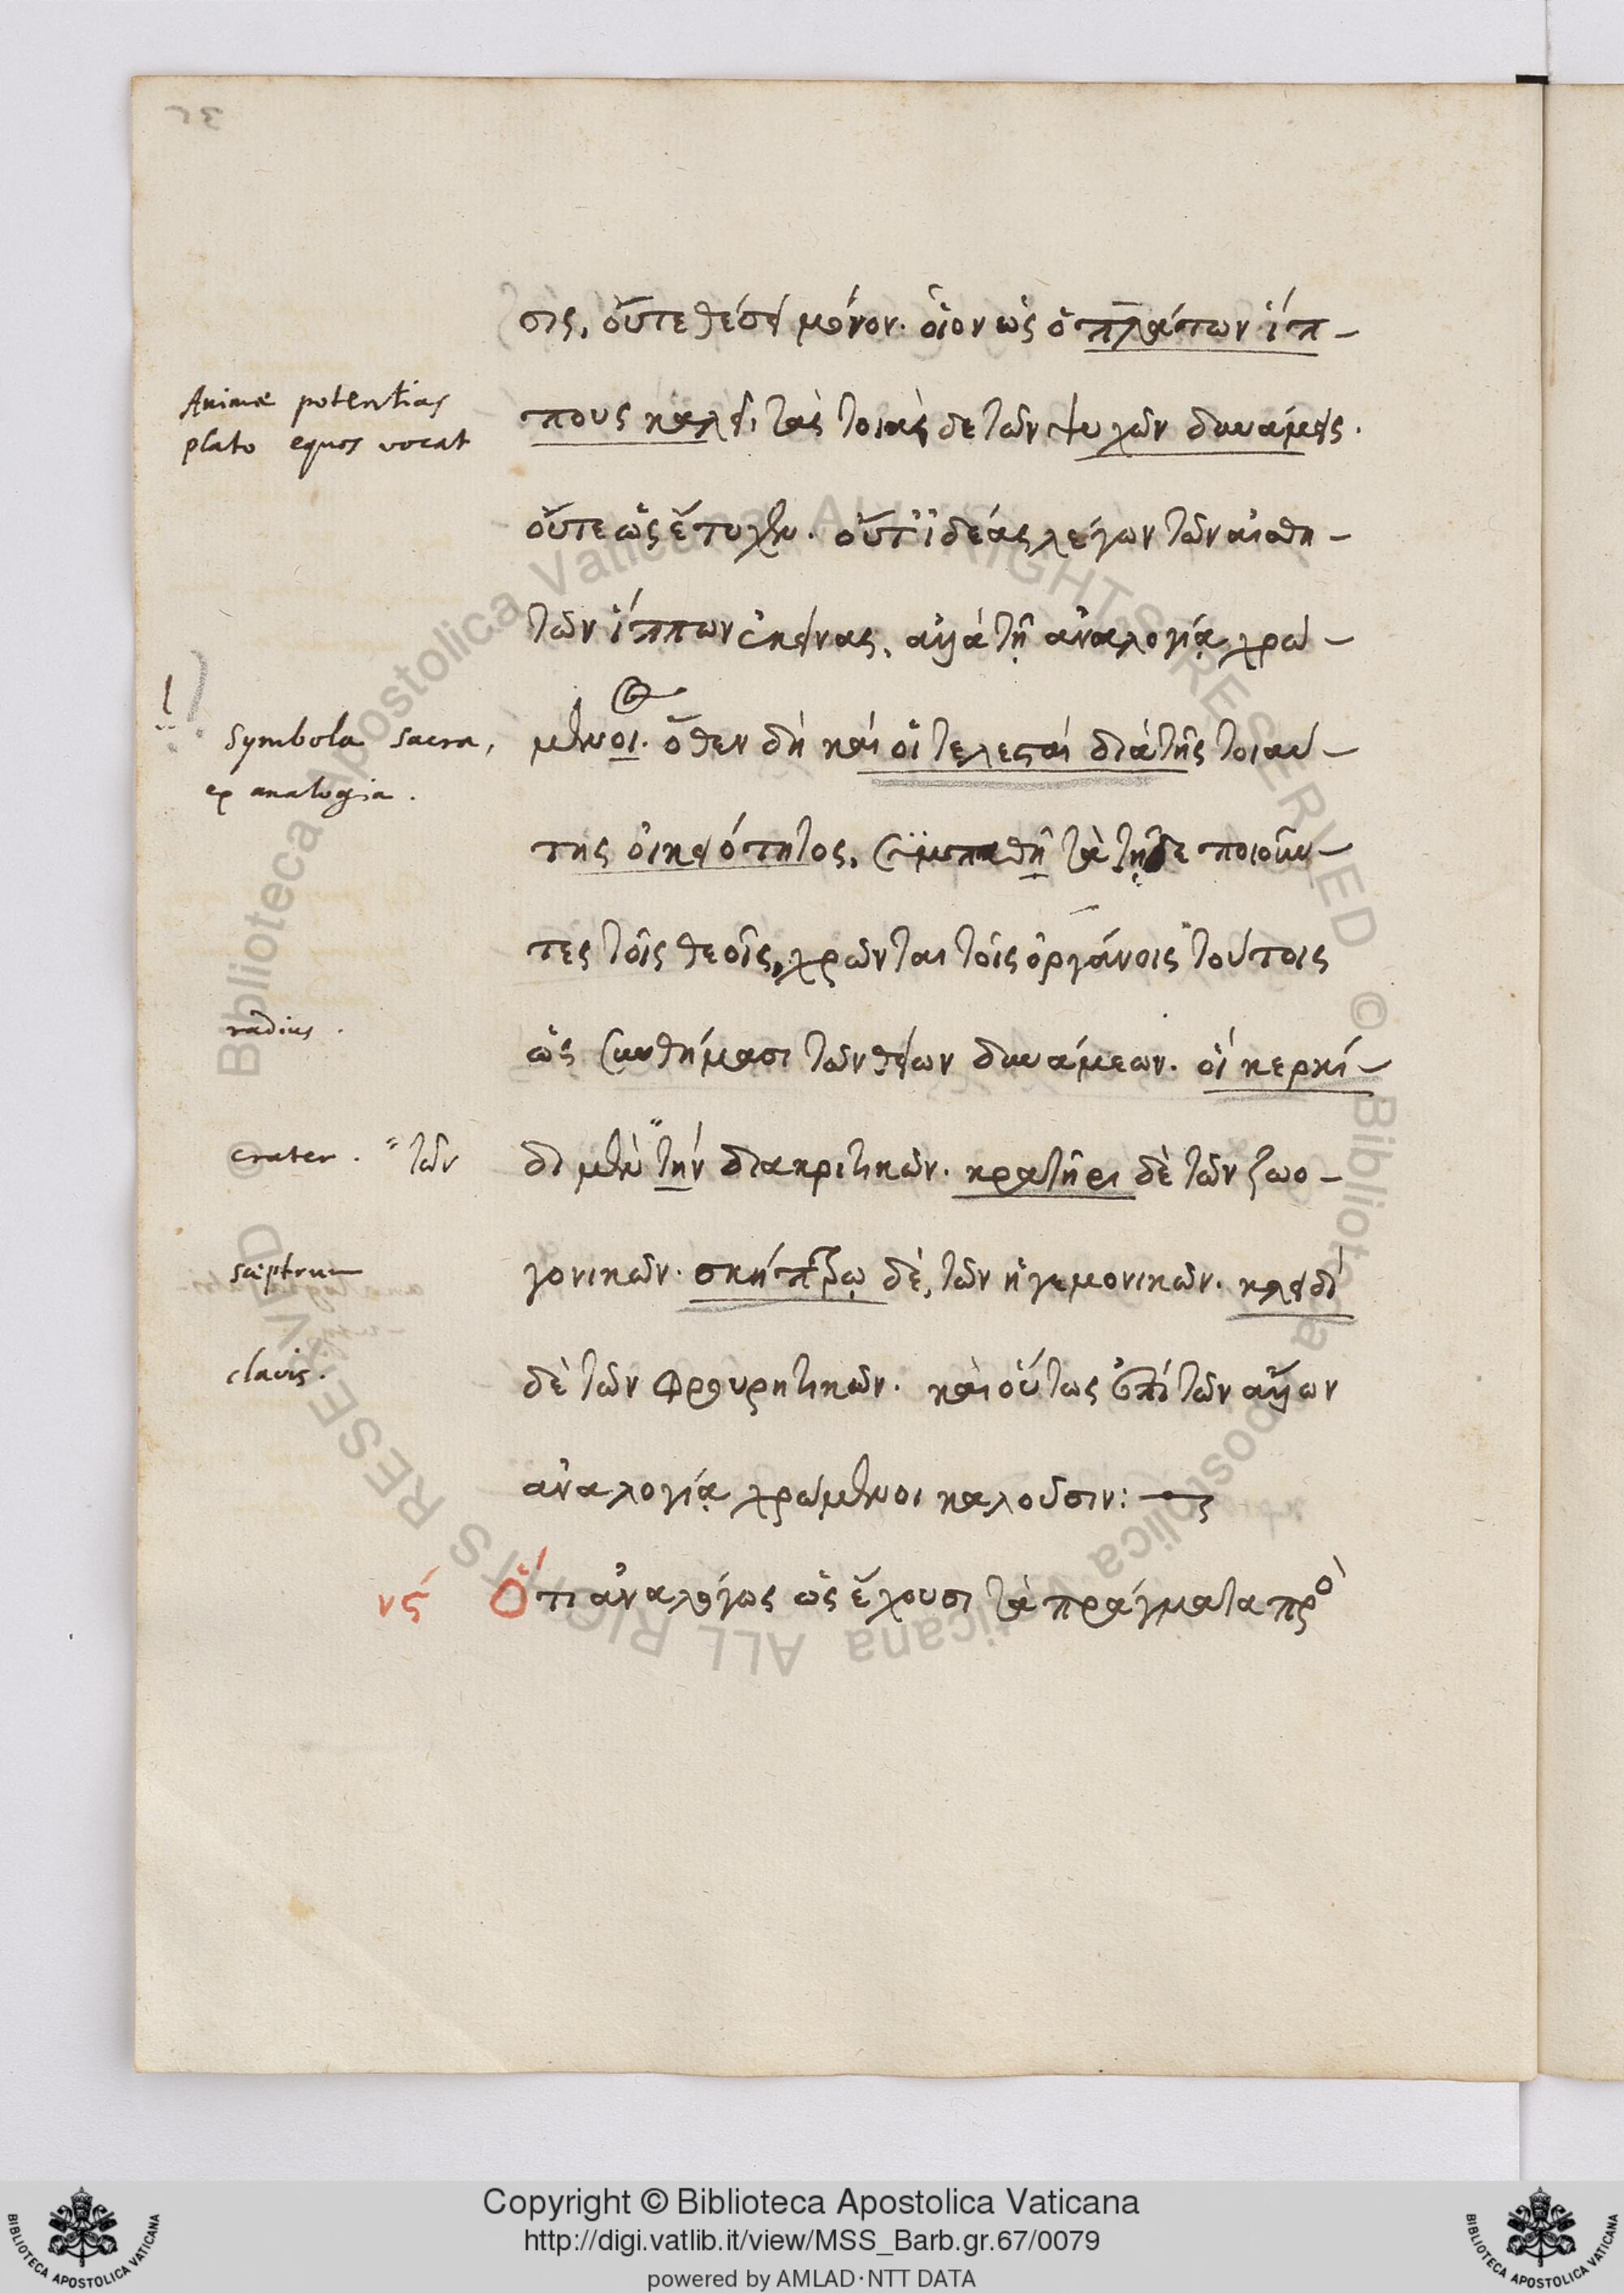 σις, οὔτε θέσει μόνον. οἷον ὡς ὁ πλάτων ἵπ-
Animæ potentias
plato equos vocat
πους καλεῖ, τὰς τοιάς δε τῶν ψυχῶν δυνάμεις.
οὔτε ὡς ἔτυχεν. οὔτ' ἰδέας λέγων τῶν αἰσθη-
τῶν ἵππων ἐκείνας, ἀλλὰ τῇ ἀναλογίᾳ χρώ-
Symbola sacra,
ex analogia.
μενοι. ὅθεν δὴ καὶ οἱ τελεσταὶ διὰ τῆς τοιαύ-
της οἰκειότητος, συμπαθῆ τὰ τῇδε ποιοῦν-
τες τοῖς θεοῖς, χρῶνται τοῖς ὀργάνοις τούτοις
radius.
ὡς συνθήμασι τῶν θείων δυνάμεων. οἱ κερκί-
crater. " τῶν
δι μὲν "τὴν διακριτικῶν. κρατῆρι δὲ τῶν ζωο-
sceptrum
γονικῶν. σκήπτρῳ δὲ, τῶν ἡγεμονικῶν. κλειδὶ
clavis.
δὲ τῶν φρουρητικῶν. καὶ οὕτως ἐπὶ τῶν ἄλλων
ἀναλογίᾳ χρώμενοι καλοῦσιν:
νϛ Ὅτι ἀναλόγως ὡς ἔχουσι τὰ πράγματα πρὸ
Copyright © Biblioteca Apostolica Vaticana
http://digi.vatlib.it/view/MSS_Barb.gr.67/0079
powered by AMLAD·NTT DATA